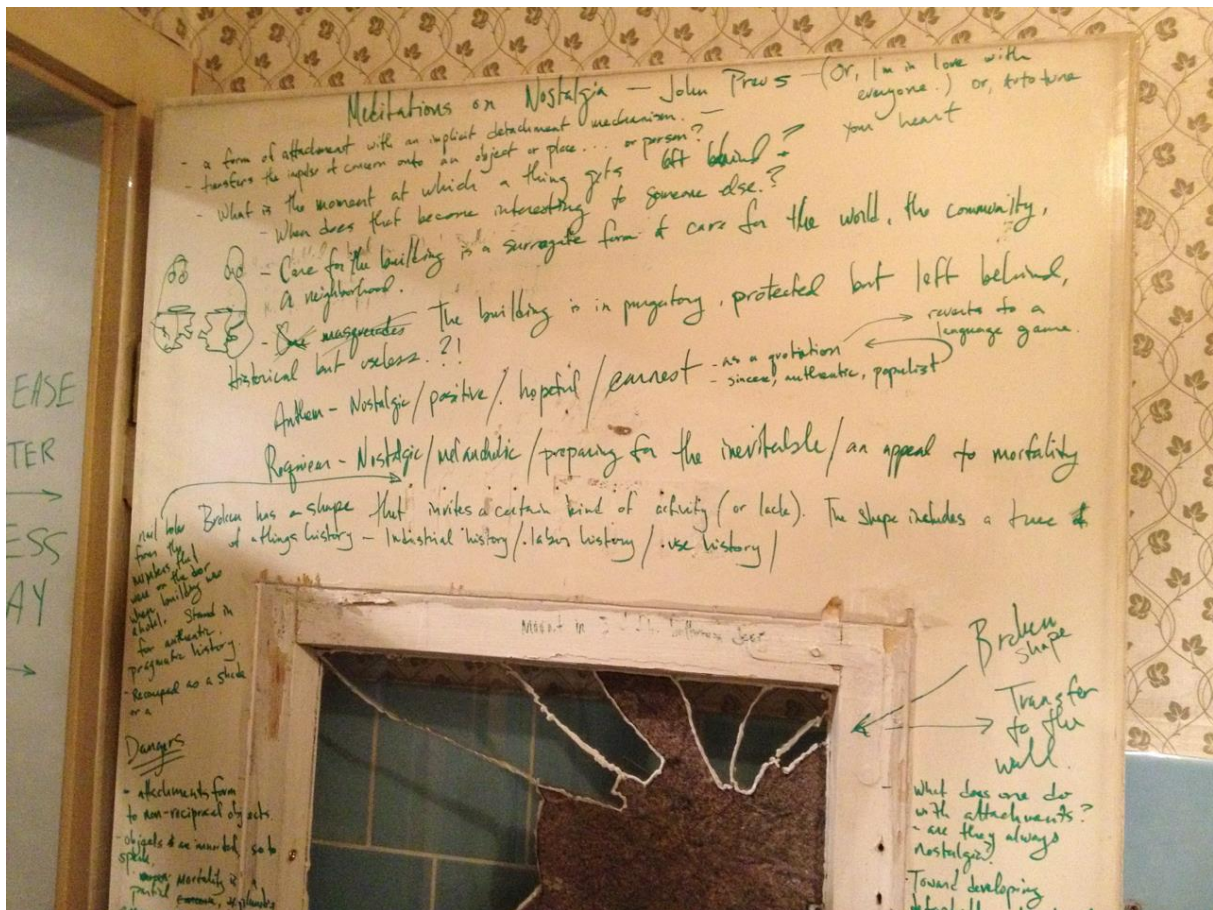 Meditations on Nostalgia – John Preus – (Or, I'm in love with
everyone.) or, Autotune
your heart
- a form of attachment with an implicit detachment mechanism. –
- transfers the impulse of concern onto an object or place... or person?
- What is the moment at which a thing gets left behind?
- When does that become interesting to someone else?
- Care for the building is a surrogate form of care for the world, the community,
a neighborhood.
- masquerades The building is in purgatory, protected but left behind,
Historical but useless. ?!
reverts to a
language game.
Anthem – Nostalgic / positive / hopeful / earnest - as a quotation
- sincere, authentic, populist
Requiem – Nostalgic / melancholic / preparing for the inevitable / an appeal to mortality
Broken has a shape that invites a certain kind of activity (or lack). The shape includes a
of a things history – Industrial history / labor history / use history /
nail holes
from the
numbers that
were on the door
when building was
a hotel. Stand in
for authentic,
pragmatic history
- Recouped as a
or a
Dangers
- attachments form
to non-reciprocal objects.
- objects so to
speak.
Mortality is
partial
EASE
TER
ESS
AY
Broken
shape
Transfer
to the
wall.
What does one do
with attachments?
- are they always
nostalgic?
Toward developing